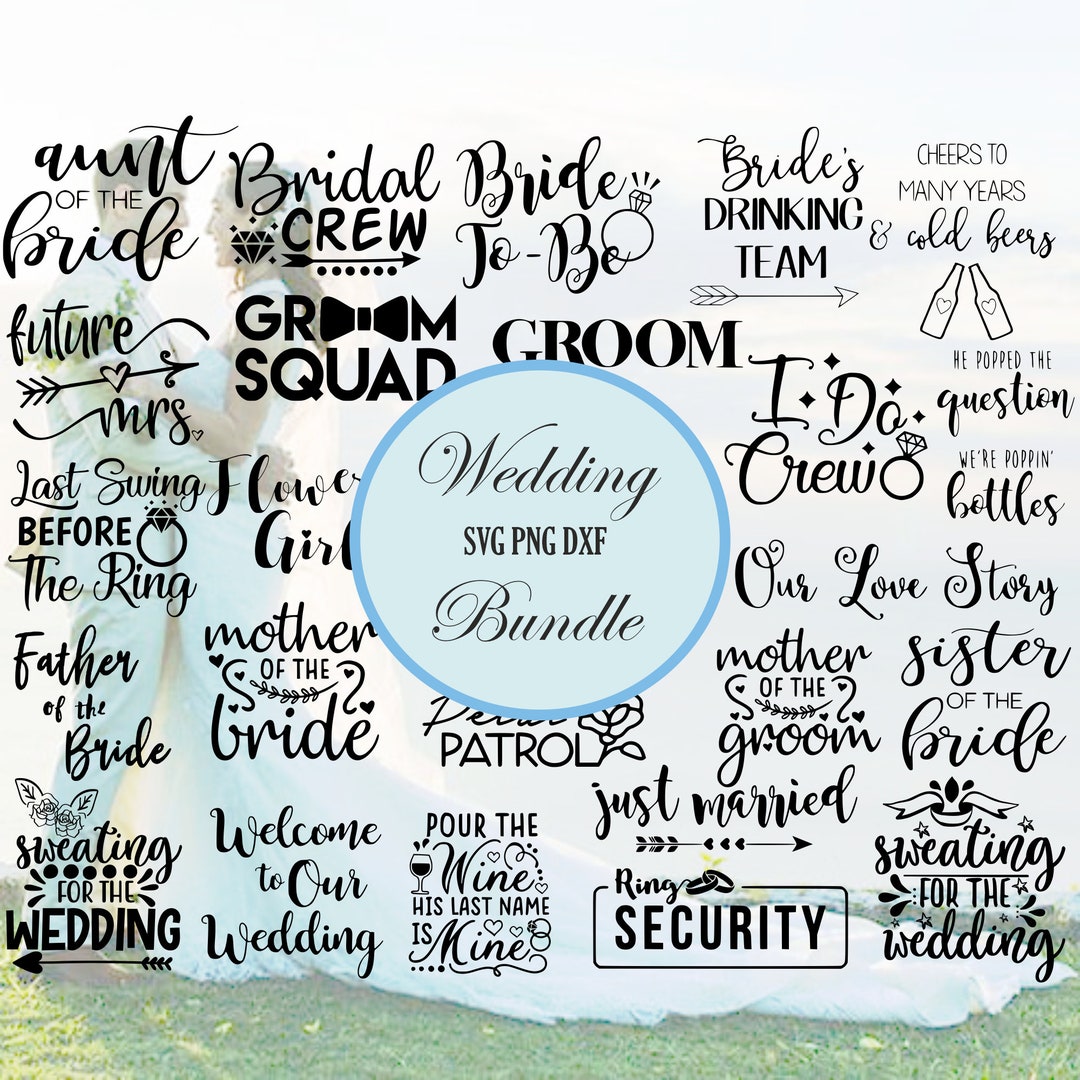 aunt
OF THE
bride
Bridal
CREW
Bride
To-Be
Bride's
DRINKING
TEAM
CHEERS TO
MANY YEARS
& cold beers
future
mrs.
GROOM
SQUAD
GROOM
I Do
Crew
HE POPPED THE
question
WE'RE POPPIN'
bottles
Last Swing
BEFORE
The Ring
Flower
Girl
Wedding
SVG PNG DXF
Bundle
Our Love Story
Father
of the
Bride
mother
OF THE
bride
Petal
PATROL
mother
OF THE
groom
sister
OF THE
bride
sweating
FOR THE
WEDDING
Welcome
to Our
Wedding
POUR THE
Wine
HIS LAST NAME
IS Mine
just married
Ring
SECURITY
sweating
FOR THE
wedding